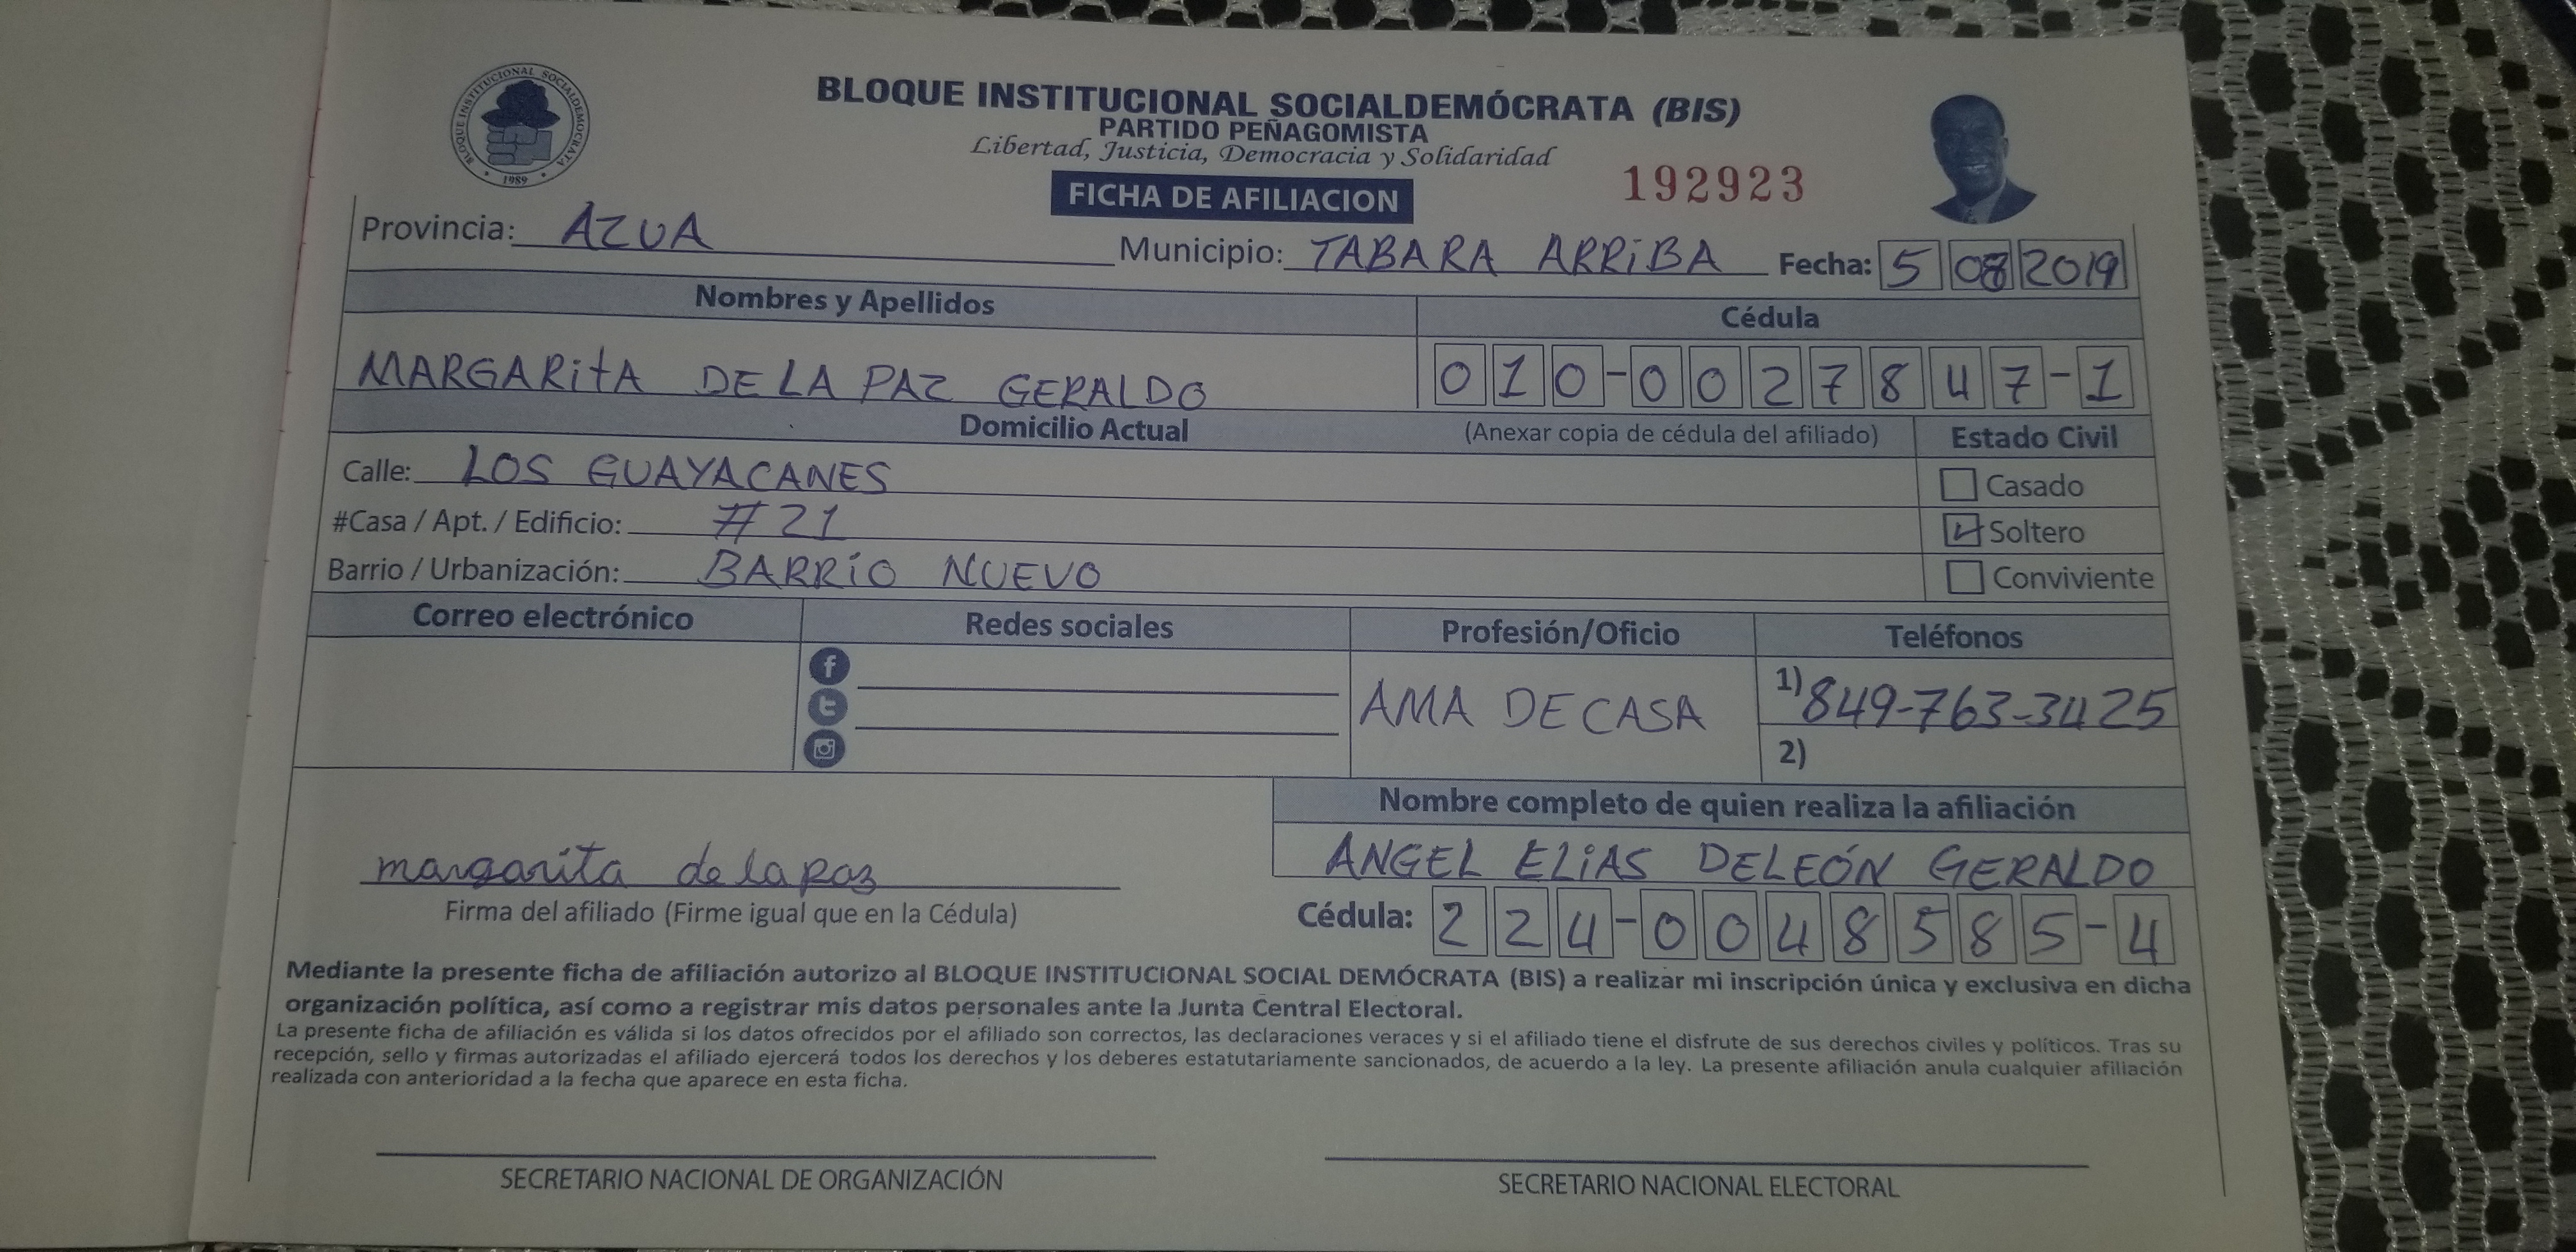 BLOQUE INSTITUCIONAL SOCIALDEMOCRATA
1989
BLOQUE INSTITUCIONAL SOCIALDEMÓCRATA (BIS)
PARTIDO PEÑAGOMISTA
Libertad, Justicia, Democracia y Solidaridad
FICHA DE AFILIACION 192923
Provincia: AZUA Municipio: TABARA ARRiBA Fecha: 5 08 2019
Nombres y Apellidos Cédula
MARGARitA DE LA PAZ GERALDO 010-0027847-1
Domicilio Actual (Anexar copia de cédula del afiliado) Estado Civil
Calle: LOS GUAYACANES Casado
#Casa / Apt. / Edificio: #21 Soltero
Barrio / Urbanización: BARRiO NUEVO Conviviente
Correo electrónico Redes sociales Profesión/Oficio Teléfonos
AMA DE CASA 1) 849-763-3425
2)
Nombre completo de quien realiza la afiliación
margarita de la paz ANGEL ELiAS DELEÓN GERALDO
Firma del afiliado (Firme igual que en la Cédula) Cédula: 224-0048585-4
Mediante la presente ficha de afiliación autorizo al BLOQUE INSTITUCIONAL SOCIAL DEMÓCRATA (BIS) a realizar mi inscripción única y exclusiva en dicha
organización política, así como a registrar mis datos personales ante la Junta Central Electoral.
La presente ficha de afiliación es válida si los datos ofrecidos por el afiliado son correctos, las declaraciones veraces y si el afiliado tiene el disfrute de sus derechos civiles y políticos. Tras su
recepción, sello y firmas autorizadas el afiliado ejercerá todos los derechos y los deberes estatutariamente sancionados, de acuerdo a la ley. La presente afiliación anula cualquier afiliación
realizada con anterioridad a la fecha que aparece en esta ficha.
SECRETARIO NACIONAL DE ORGANIZACIÓN SECRETARIO NACIONAL ELECTORAL